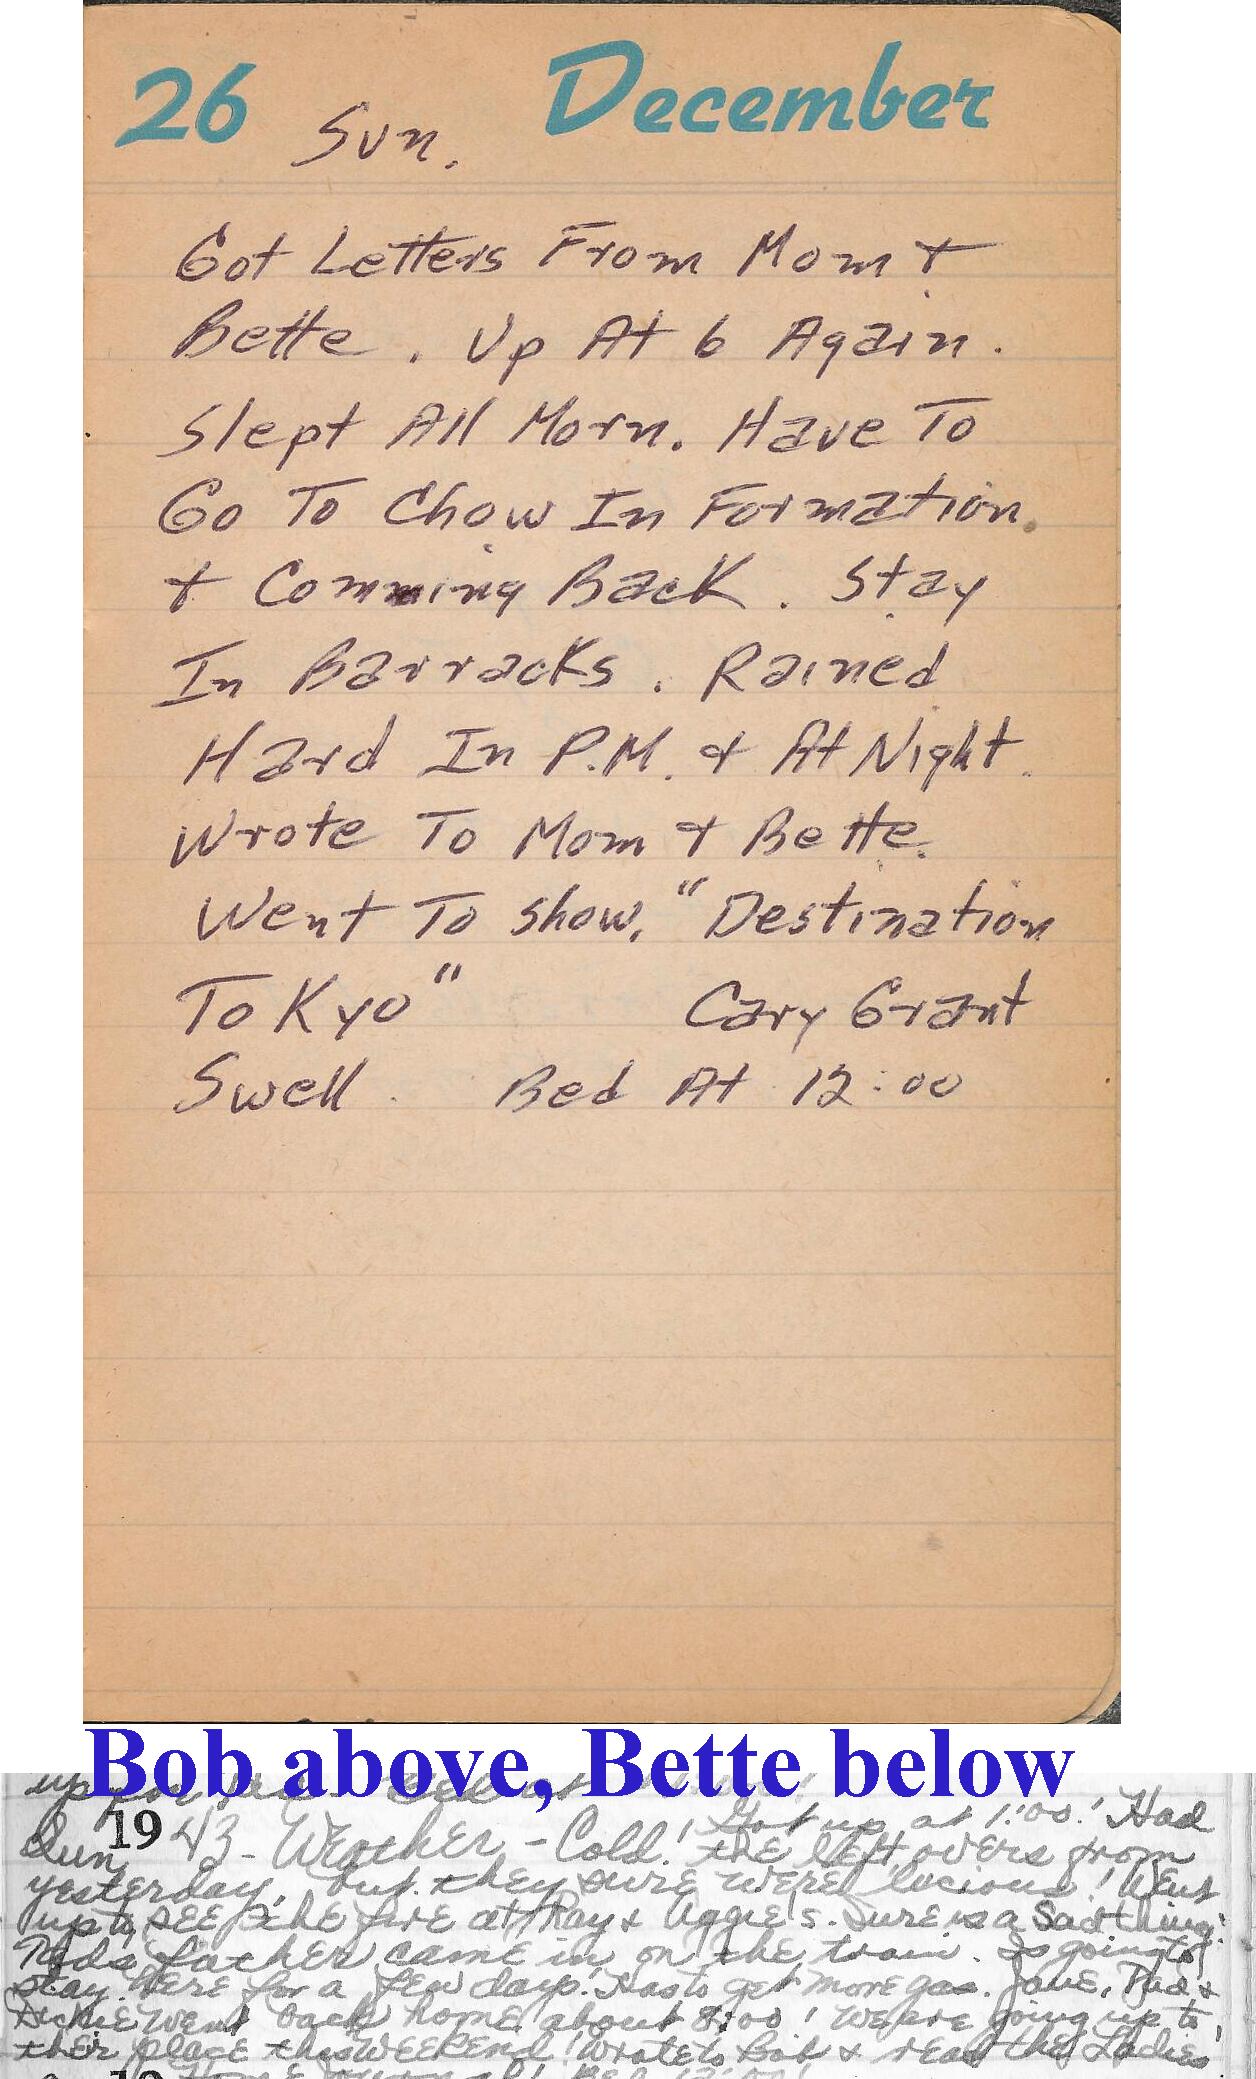 26 Sun. December
Got Letters From Mom &
Bette. Up At 6 Again.
Slept All Morn. Have To
Go To Chow In Formation
& Comming Back. Stay
In Barracks. Rained
Hard In P.M. & At Night.
Wrote To Mom & Bette.
Went To Show, "Destination
Tokyo" Cary Grant
Swell. Bed At 12:00
Bob above, Bette below
19 43 - Weather - Cold! Got up at 1:00! Had
Sun. the left overs from
yesterday, but they sure were lucious! Went
up to see the fire at Ray & Aggie's. Sure is a sad thing!
father came in on the train. Is going to
stay here for a few days! Has to get more gas. Jane, Bud &
Dickie went back home about 8:00! We are going up to
their place this weekend! Wrote to Bob & read the Ladies